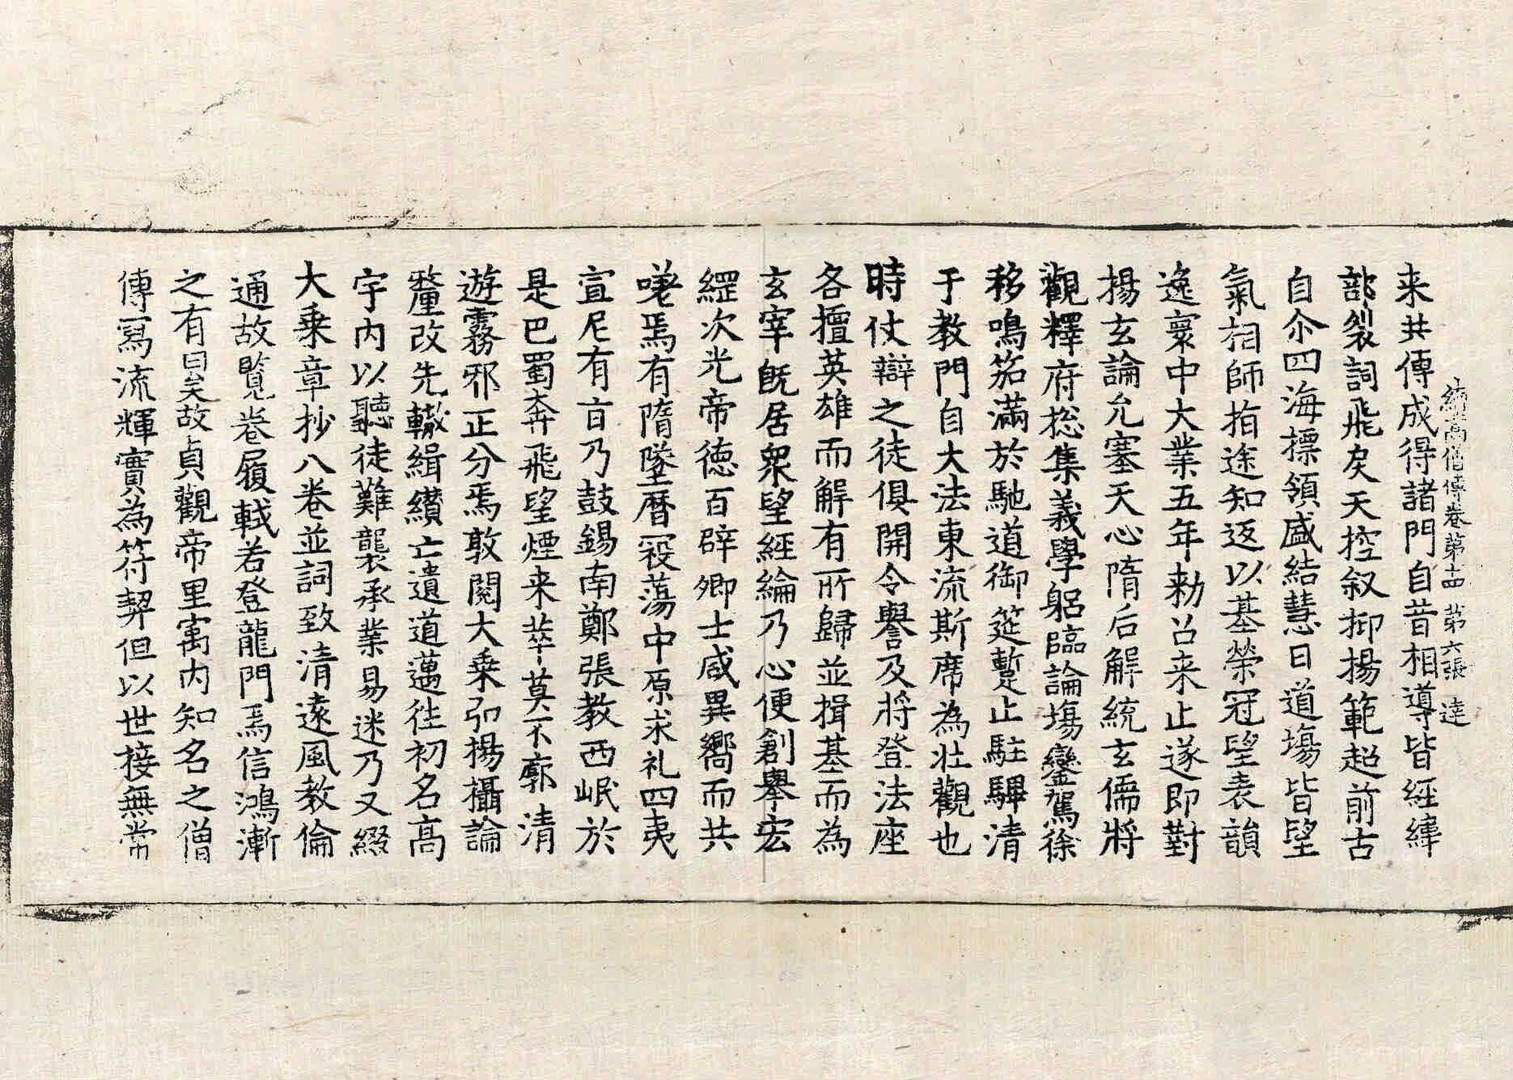 續高僧傳卷第十四 第六張 達
来共傳成得諸門自昔相導皆經緯
部裂詞飛戾天控叙抑揚範超前古
自尒四海標領盛結慧日道場皆望
氣相師指途知返以基榮冠望表韻
逸寰中大業五年勑召来止遂即對
揚玄論允塞天心隋后解統玄儒將
觀釋府捴集義學躬臨論場鑾駕徐
移鳴笳滿於馳道御筵暫止駐驆清
于教門自大法東流斯席為壯觀也
時仗辯之徒俱開令譽及將登法座
各擅英雄而解有所歸並揖基而為
玄宰旣居衆望經綸乃心便創舉宏
綱次光帝德百辟卿士咸異嚮而共
嗟焉有隋墜曆寇蕩中原求礼四夷
宣尼有旨乃鼓錫南鄭張教西岷於
是巴蜀奔飛望煙来萃莫不廓清
遊霧邪正分焉敦閱大乗弘揚攝論
釐改先轍緝纘亡遺道邁往初名高
宇内以聽徒難襲承業易迷乃又綴
大乗章抄八卷並詞致清遠風教倫
通故覽卷履軾若登龍門焉信鴻漸
之有日矣故貞觀帝里寓内知名之僧
傳寫流輝實為符契但以世接無常